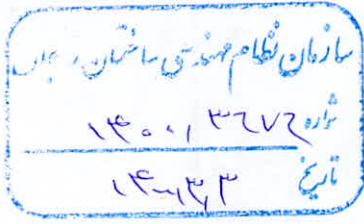 سازمان نظام مهندسی ساختمان زنجان
شماره ۱۴۰۰،۱ ۳۶۷۶
تاریخ ۱۴۰۰،۳،۳